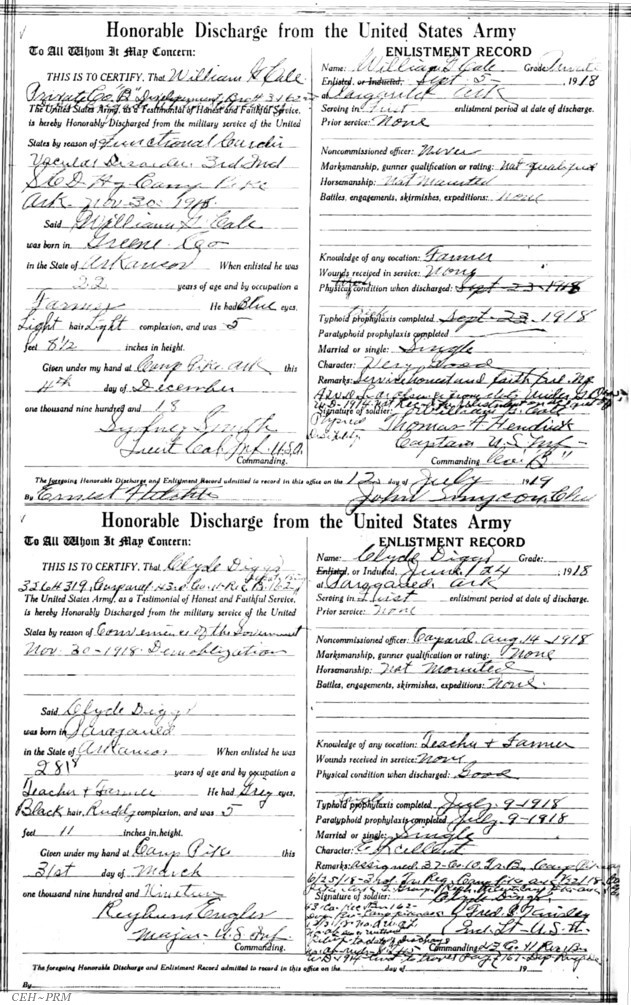 Honorable Discharge from the United States Army
To All Whom It May Concern:
THIS IS TO CERTIFY, That William G Cale
Private Co. "B" Development
The United States Army, as a Testimonial of Honest and Faithful Service,
is hereby Honorably Discharged from the military service of the United
States by reason of Functional Cardio
Vascular Disorder. 3rd Ind
S.C.D. Hq Camp Pike
Ark Nov 30 1918.
Said William G. Cale
was born in Greene Co
in the State of Arkansas When enlisted he was
22 years of age and by occupation a
Farmer He had Blue eyes,
Light hair, Light complexion, and was 5
feet 8 1/2 inches in height.
Given under my hand at Camp Pike Ark this
4th day of December
one thousand nine hundred and 18
Sydney Smith
Lieut Col. Inf. U.S.A.
Commanding.
ENLISTMENT RECORD
Name: William G Cale Grade:
Enlisted, or Inducted, Sept. 5- 1918
at Paragould Ark
Serving in First enlistment period at date of discharge.
Prior service: None
Noncommissioned officer: Never
Marksmanship, gunner qualification or rating: Not qualified
Horsemanship: Not Mounted
Battles, engagements, skirmishes, expeditions: None
Knowledge of any vocation: Farmer
Wounds received in service: None
Physical condition when discharged: Sept 23-1918
Typhoid prophylaxis completed Sept-23-1918
Paratyphoid prophylaxis completed
Married or single: Single
Character: Very Good
Remarks: Service honest and faithful. No
Signature of soldier: William G. Cale
Thomas A Hendrick
Captain U.S. Inf-
Commanding Co. "B"
The foregoing Honorable Discharge and Enlistment Record admitted to record in this office on the 12 day of July 1919
By Ernest
Honorable Discharge from the United States Army
To All Whom It May Concern:
THIS IS TO CERTIFY, That Clyde Diggs
3264319, Corporal 43rd Co.
The United States Army, as a Testimonial of Honest and Faithful Service,
is hereby Honorably Discharged from the military service of the United
States by reason of Convenience of the Government
Nov. 30-1918. Demobilization
Said Clyde Diggs
was born in Paragould
in the State of Arkansas When enlisted he was
years of age and by occupation a
Teacher & Farmer He had Grey eyes,
Black hair, Ruddy complexion, and was 5
feet 11 inches in height.
Given under my hand at Camp Pike this
31st day of March
one thousand nine hundred and Nineteen
Reyburn Engler
Major. U.S. Inf
Commanding.
ENLISTMENT RECORD
Name: Clyde Diggs Grade:
Enlisted, or Inducted, June 24 1918
at Paragould, Ark
Serving in First enlistment period at date of discharge.
Prior service: None
Noncommissioned officer: Corporal Aug 14-1918
Marksmanship, gunner qualification or rating: None
Horsemanship: Not Mounted
Battles, engagements, skirmishes, expeditions: None.
Knowledge of any vocation: Teacher & Farmer
Wounds received in service: None
Physical condition when discharged: Good
Typhoid prophylaxis completed July-9-1918
Paratyphoid prophylaxis completed July 9-1918
Married or single: Single
Character: Excellent
Remarks: assigned 37-Co-10. Tr. Bn.
Signature of soldier: Clyde Diggs
2nd Lt-U.S.
Commanding 43 Co.
The foregoing Honorable Discharge and Enlistment Record admitted to record in this office on the day of 19
By
CEH~PRM